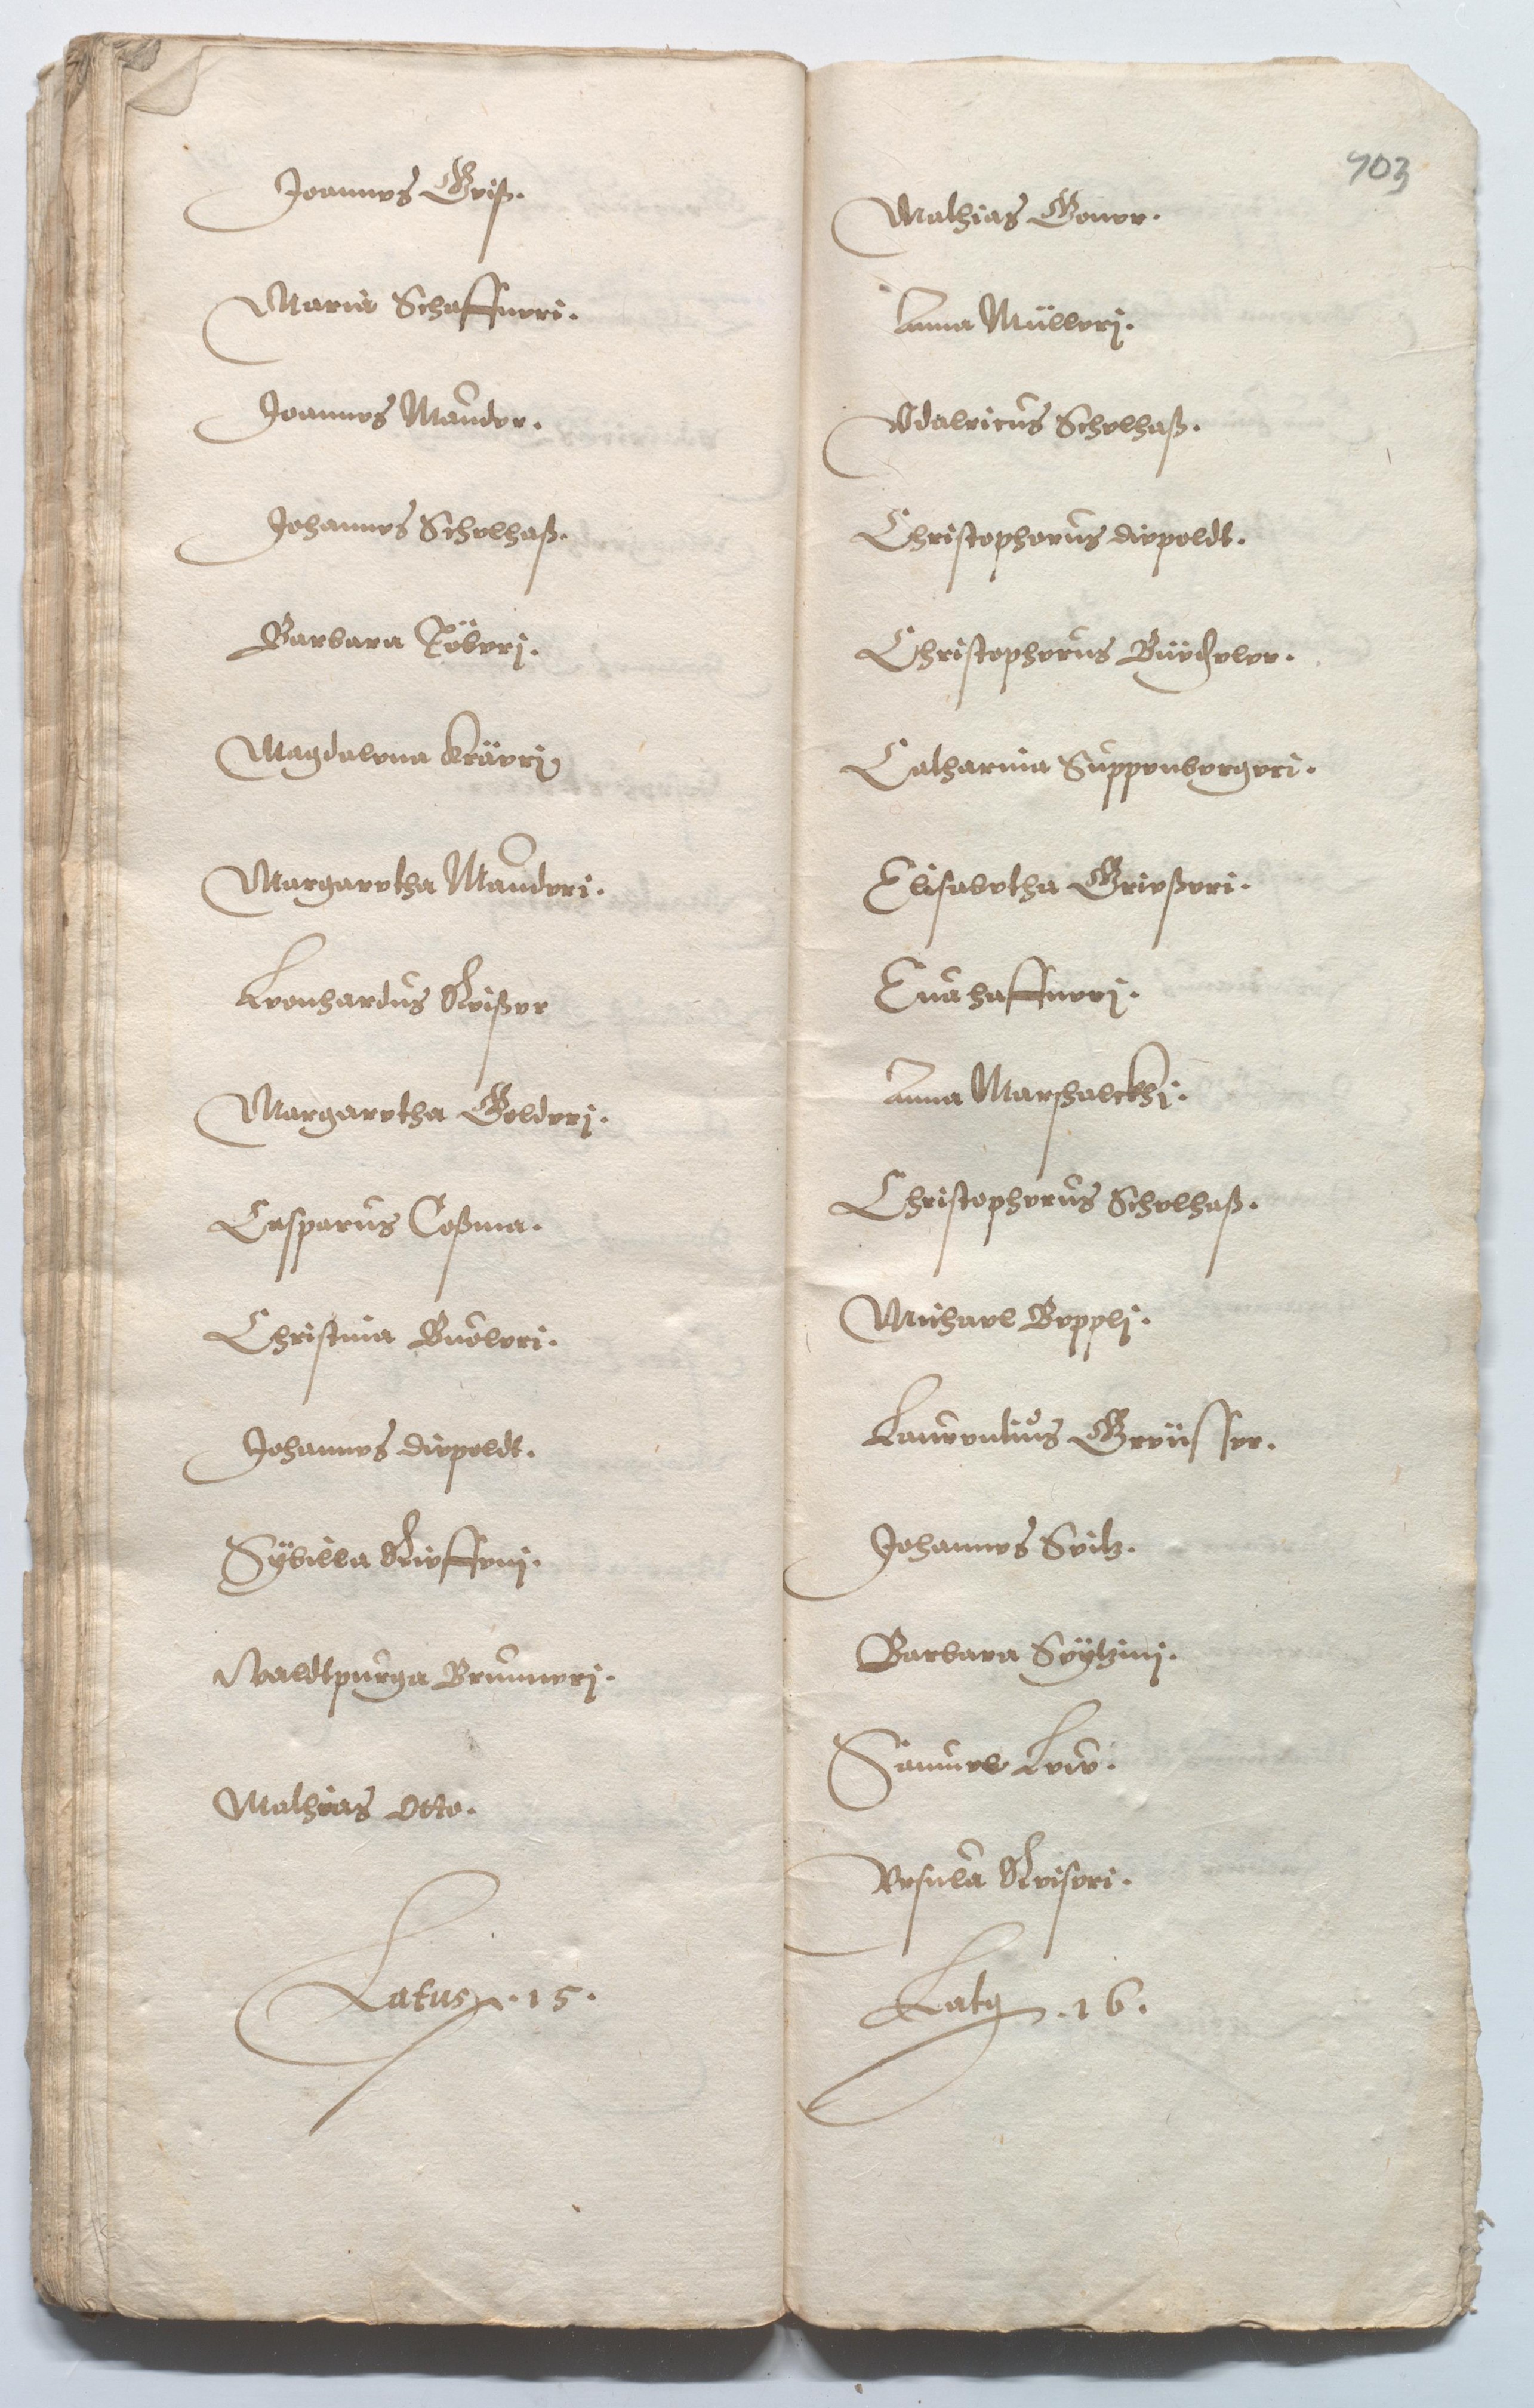 Joannes Geiß.
Maria Schaffneri.
Joannes Mauder.
Johannes Schelhaß.
Barbara Töberj.
Magdalena Kräerj
Margaretha Mauderi.
Leonhardus Keißer
Margaretha Gelderj.
Casparus Coßma.
Christina Buoleri.
Johannes diepoldt.
Sÿbilla Kieffenj.
Waldtpurga Brunnerj.
Mathias Otto.
Latus . 15.
703
Mathias Goner.
Anna Müllerj.
Vdalricus Schelhaß.
Christophorus diepoldt.
Christopherus Büecheler.
Catharina Suppenbergeri.
Elisabetha Grießeri.
Eua haffnerj.
Anna Marschalckhi.
Christopherus Schelhaß.
Michael Bepplj.
Laurentius Greüsser.
Johannes Seitz.
Barbara Seÿtzinj.
Samuel Leiv.
Vrsula Keiseri.
Latus . 16.